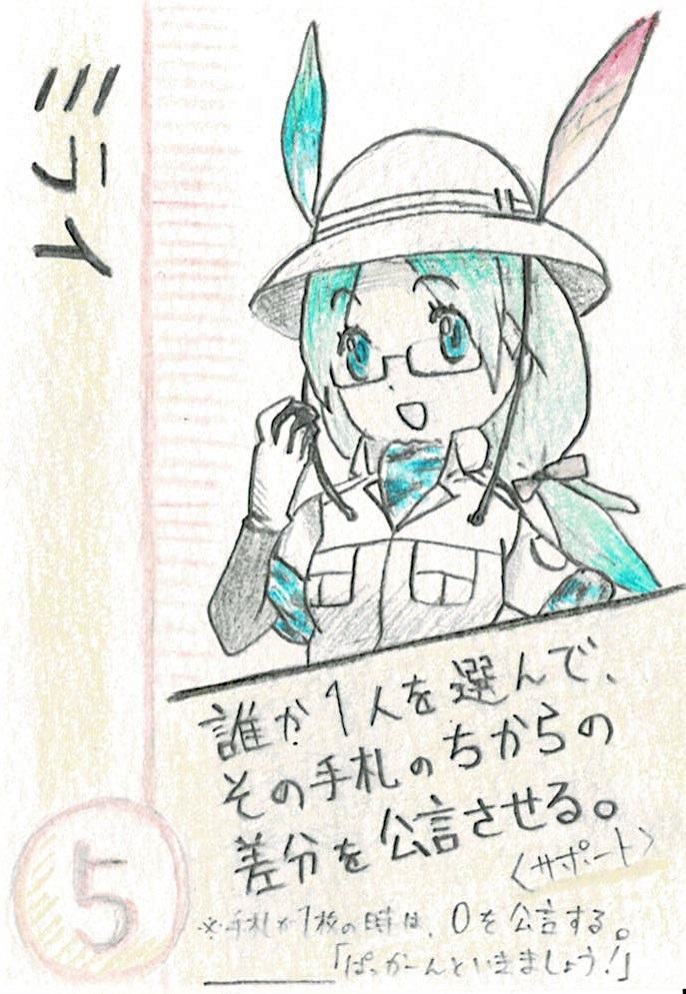 ミライ
誰か1人を選んで、
その手札のちからの
差分を公言させる。
〈サポート〉
※手札が1枚の時は、0を公言する。
「ぱっかーんといきましょう！」
5